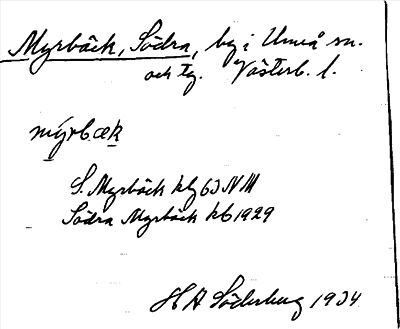 Myrbäck, Södra, by i Umeå sn.
och tg. Västerb. l.
mýrbæk
S. Myrbäck kg 63 NM
Södra Myrbäck kb 1929
H A Söderberg 1934